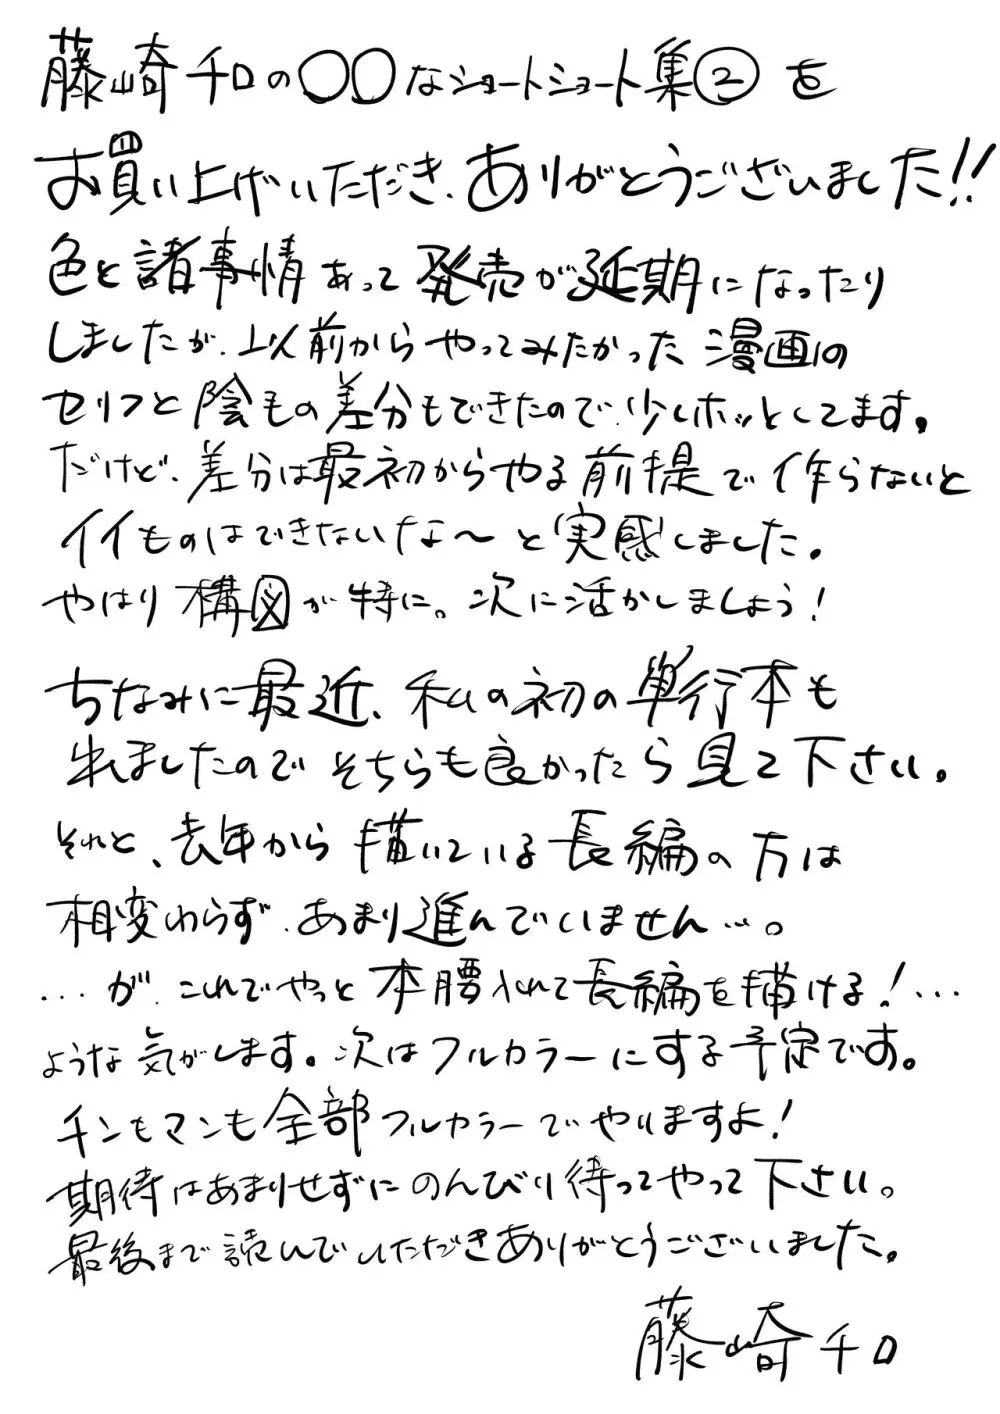 藤崎チロの〇〇なショートショート集②を
お買い上げいただき、ありがとうございました!!
色と諸事情あって発売が延期になったり
しましたが、以前からやってみたかった漫画の
セリフと陰毛の差分もできたので、少しホッとしてます。
だけど、差分は最初からやる前提で作らないと
イイものはできないな〜と実感しました。
やはり構図が特に。次に活かしましょう!
ちなみに最近、私の初の単行本も
出ましたのでそちらも良かったら見て下さい。
それと、去年から描いている長編の方は
相変わらず、あまり進んでいません…。
…が、これでやっと本腰入れて長編を描ける!…
ような気がします。次はフルカラーにする予定です。
チンもマンも全部フルカラーでやりますよ!
期待はあまりせずにのんびり待ってやって下さい。
最後まで読んでいただきありがとうございました。
藤崎チロ